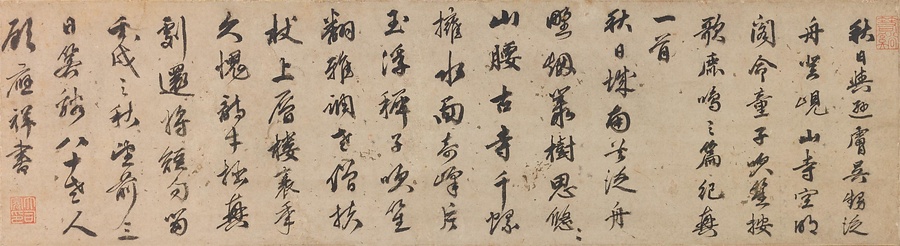 秋日與膚吳泛
舟登峴山寺空明
閣令童子吹笙按
歌鹿鳴之篇紀興
一首
秋日城南共泛舟
野烟叢樹思悠々
山腰古寺千螺
擁水面奇峰片
玉浮稚子吹笙
翻雅調老僧扶
杖上層樓衰年
久愧詩才拙興
劇還將短句留
壬戌之秋望前三
日箬谿八十老人
顧應祥書